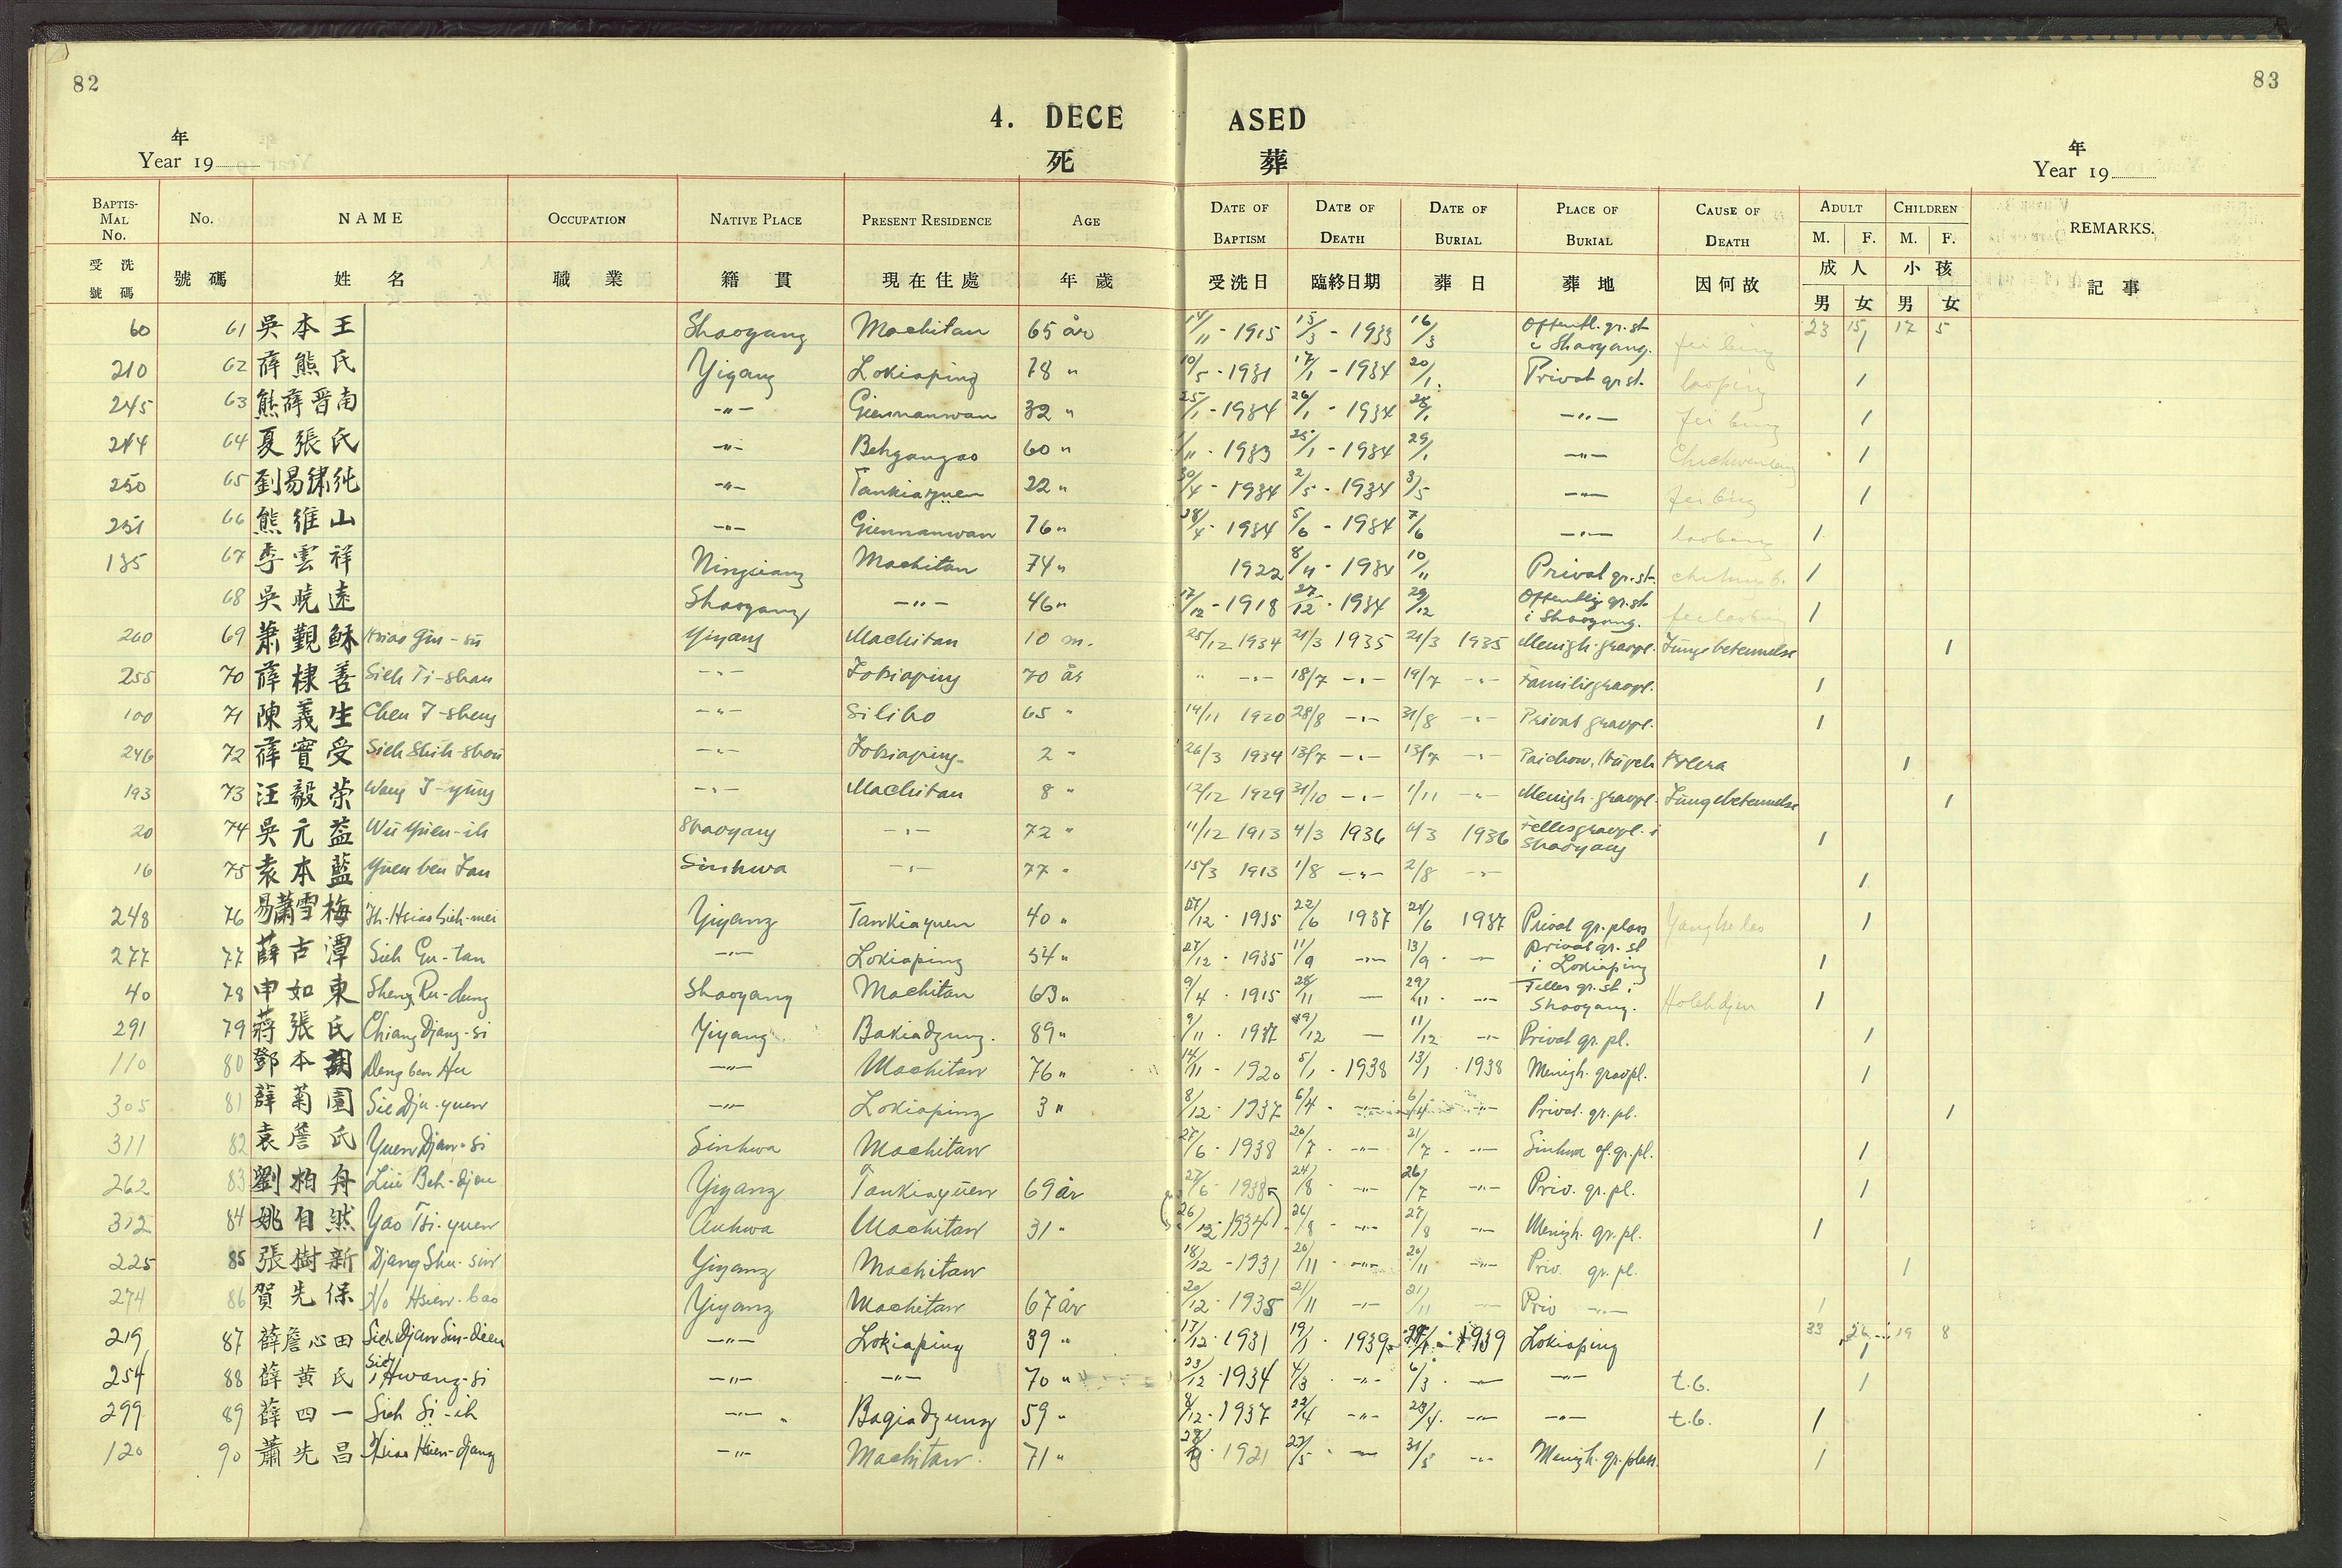 82
83
4. DECEASED
死 葬
年
Year 19
年
Year 19
BAPTISMAL No. No. NAME OCCUPATION NATIVE PLACE PRESENT RESIDENCE AGE DATE OF BAPTISM DATE OF DEATH DATE OF BURIAL PLACE OF BURIAL CAUSE OF DEATH ADULT M. F. CHILDREN M. F. REMARKS.
受洗號碼 號碼 姓名 職業 籍貫 現在住處 年歲 受洗日 臨終日期 葬日 葬地 因何故 成人 男 女 小孩 男 女 記事
60 61 吳本王 Shaoyang Machitan 65 år 14/11 - 1915 15/3 - 1933 16/3 Offentl. gr. st. i Shaoyang. fei bing 23 15 17 5 1
210 62 薛熊氏 Yigang Lokiaping 78 " 10/5 - 1931 17/1 - 1934 20/1 Privat gr st. laoping 1
245 63 熊薛晋南 -"- Giennanwan 32 " 25/1 - 1934 26/1 - 1934 28/1 -"- fei bing 1
244 64 夏張氏 -"- Behgangao 60 " 1/11 - 1933 25/1 - 1934 29/1 -"- 1
250 65 劉易綉純 -"- Tankiayuen 22 " 30/4 - 1934 2/5 - 1934 3/5 -"- fei bing 1
251 66 熊維山 -"- Giennanwan 76 " 28/4 - 1934 5/6 - 1934 7/6 -"- laobing 1
135 67 李雲祥 Ningxiang Machitan 74 " 1922 8/11 - 1934 10/11 Privat gr. st. 1
68 吳曉遠 Shaoyang -"- 46 " 17/12 - 1918 27/12 - 1934 29/12 Offentlig gr. st. i Shaoyang. 1
260 69 蕭觀稣 Hsiao Gün-sü Yiyang Machitan 10 m. 25/12 1934 21/3 1935 21/3 1935 Menigh. gravpl. Lungebetennelse 1
255 70 薛棣善 Sieh Ti-shan -"- Lokiaping 70 år " -"- 18/7 -"- 19/7 -"- Familiegravpl. 1
100 71 陳義生 Chen I-sheng -"- Siliho 65 " 14/11 1920 28/8 -"- 31/8 -"- Privat gravpl. 1
246 72 薛實受 Sieh Shih-shou -"- Lokiaping 2 " 26/3 1934 13/7 -"- 13/7 -"- Paichow, Hupeh Kolera 1
193 73 汪毅荣 Wang I-yung -"- Machitan 8 " 12/12 1929 31/10 -"- 1/11 -"- Menigh. gravpl. Lungebetennelse 1
20 74 吳元益 Wu Yüen-ih Shaoyang -"- 72 " 11/12 1913 4/3 1936 4/3 1936 Fellesgravpl. i Shaoyang 1
16 75 袁本藍 Yuen ben Lan Sinhwa -"- 77 " 15/3 1913 1/8 -"- 2/8 -"- 1
248 76 易蕭雪梅 Ih-Hsiao Sieh-mei Yiyang Tankiayuen 40 " 27/12 - 1935 22/6 1937 24/6 1937 Privat gr. plass 1
277 77 薛古潭 Sieh Gu-tan -"- Lokiaping 54 " 27/12 - 1935 11/9 -"- 13/9 -"- Privat gr. st i Lokiaping 1
40 78 申如東 Sheng Ru-dung Shaoyang Machitan 63 " 9/4 - 1915 28/11 - 29/11 -"- Felles gr. st. i Shaoyang. 1
291 79 蒋張氏 Chiang Djang-si Yiyang Bakiadzung. 89 " 9/11 - 1937 9/12 - 11/12 -"- Privat gr. pl. 1
110 80 鄧本胡 Deng ben Hu -"- Machitan 76 " 14/11 - 1920 5/1 - 1938 13/1 - 1938 Menigh. gravpl. 1
305 81 薛菊園 Sie Dju-yuen -"- Lokiaping 3 " 8/12 - 1937 6/4 -"- 6/4 -"- Privat. gr. pl. 1
311 82 袁詹氏 Yuen Djan-si Sinhwa Machitan 27/6 - 1938 20/7 -"- 21/7 -"- Sinhwa of. gr. pl. 1
262 83 劉柏舟 Liu Beh-djou Yiyang Tankiayüen 69 år 27/6 - 1938 24/8 -"- 26/7 -"- Priv. gr. pl. 1
312 84 姚自然 Yao Tsi-yuen Anhwa Machitan 31 " (26/12 - 1934) 26/8 -"- 27/8 -"- Menigh. gr. pl. 1
225 85 張樹新 Djang Shu-sin Yiyang Machitan 18/12 - 1931 20/11 -"- 20/11 -"- Priv. gr. pl. 1
274 86 賀先保 Ho Hsien-bao Yiyang Machitan 67 år 20/12 - 1935 21/11 -"- 21/11 -"- Priv -"- 1
219 87 薛詹心田 Sieh Djan Sin-dien -"- Lokiaping 39 " 17/12 - 1931 19/1 - 1939 1939 Lokiaping 33 26 19 8 1
254 88 薛黄氏 Sieh Hwang-si -"- -"- 70 " 23/12 - 1934 4/3 -"- 6/3 -"- -"- t.b. 1
299 89 薛四一 Sieh Si-ih -"- Bagiadzung 59 " 8/12 - 1937 22/4 -"- 23/4 -"- -"- t.b. 1
120 90 蕭先昌 Hsiao Hsien-djang -"- Machitan 71 " 1921 27/5 -"- 31/5 -"- Menigh. gr. plass. 1